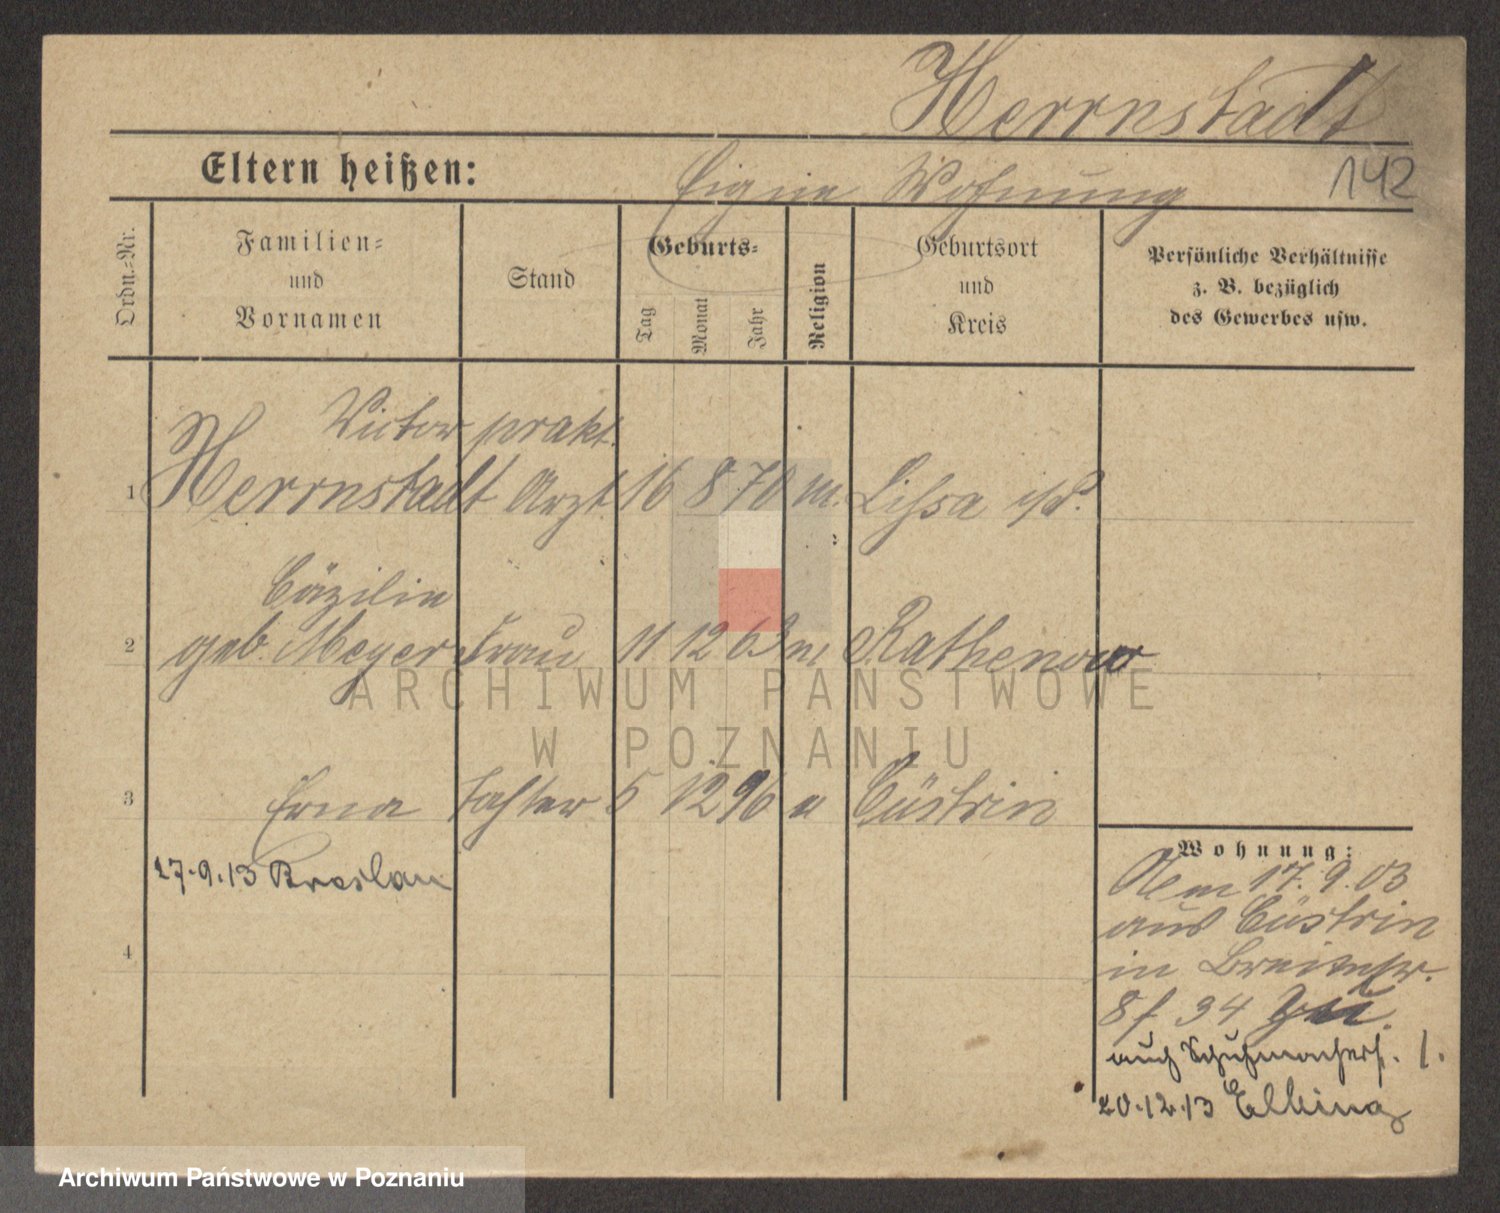 Herrnstadt
142
Eltern heißen:
Eigene Wohnung
Ordn.-Nr.
Familien-
und
Vornamen
Stand
Geburts-
Tag
Monat
Jahr
Religion
Geburtsort
und
Kreis
Persönliche Verhältnisse
z. B. bezüglich
des Gewerbes usw.
Victor prakt.
1 Herrnstadt Arzt 16 8 70 m. Lissa i/P.
Cäzilie
2 geb. Meyer Frau 11 12 63 m. Rathenow
3 Erna Tochter 5 12 96 " Cüstrin
17.9.13 Breslau
4
Wohnung:
17.9.03
aus Cüstrin
in Breitestr.
8 f 34
auch Schuhmacherst. 1.
20.12.13 Elbing
ARCHIWUM PAŃSTWOWE
W POZNANIU
Archiwum Państwowe w Poznaniu